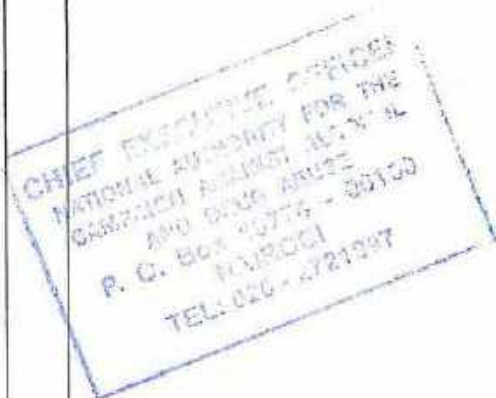 CHIEF EXECUTIVE OFFICER
NATIONAL AUTHORITY FOR THE
CAMPAIGN AGAINST
AND DRUG ABUSE
P. O. BOX - 00100
NAIROBI
TEL: 020 -